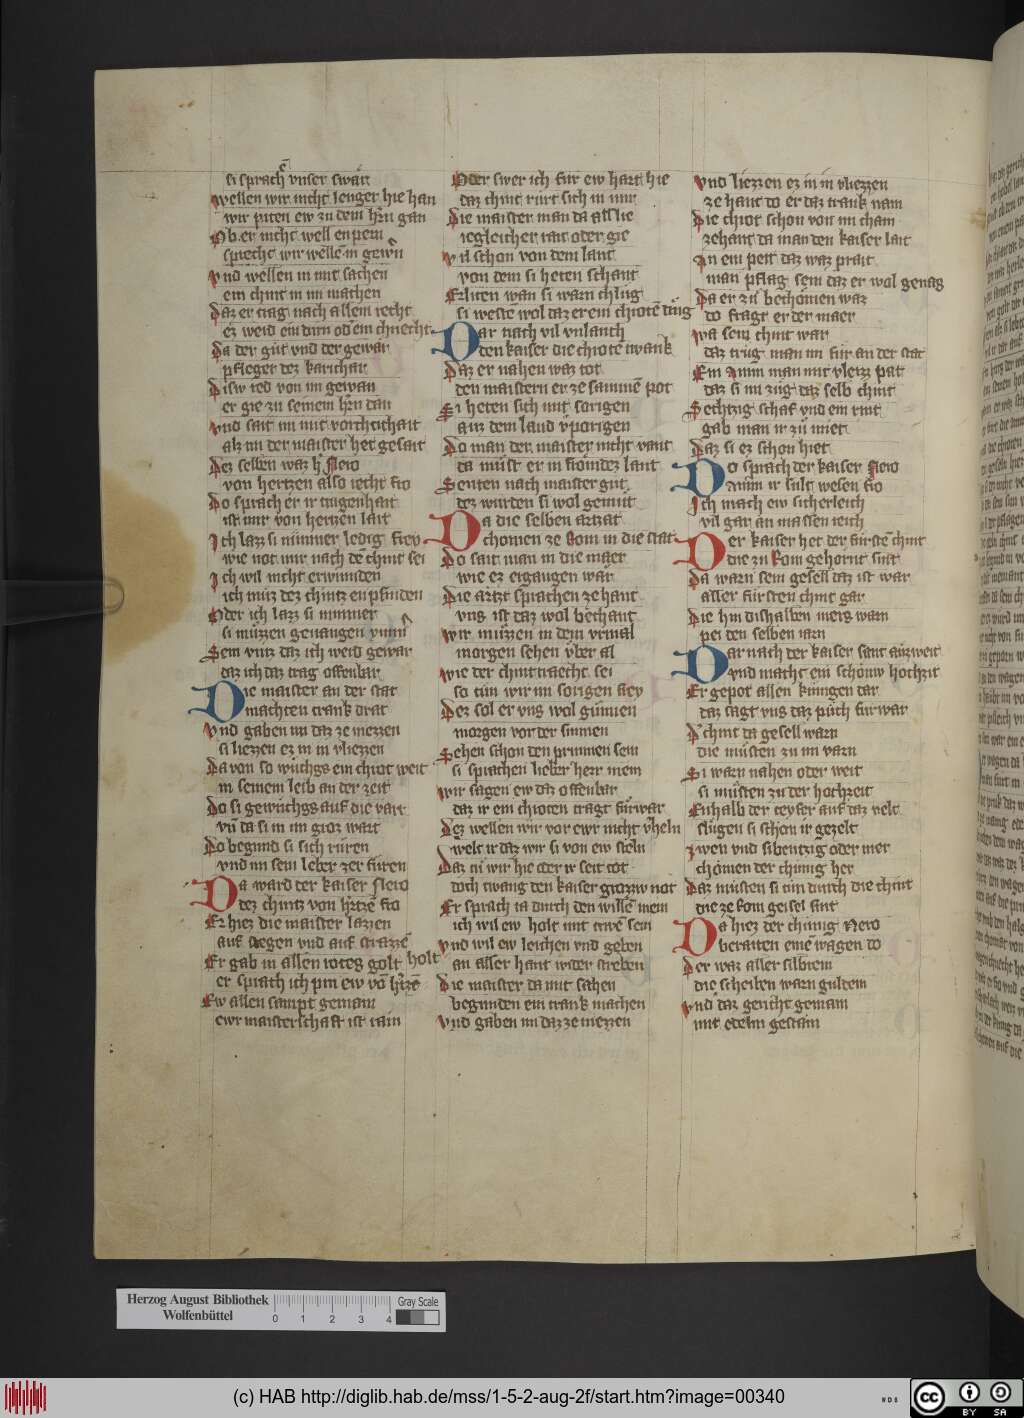 si sprachē vnser swär
wellen wir nicht lenger hie han
wir piten ew zu dem hͤrn gan
Ob er nicht well en pern
sprecht wir welle͂ in gewern
Vnd wellen in mit sachen
ein chint in im machen
Daz er trag nach allem recht
ez werd ein dirn od͛ ein chnecht
Da der gut vnd der gewar
pfleger dez karichar
Disw red von im gewan
er gie zu seinem hͤrn dan
Vnd sait im mit vorchtichait
alz im der maister het gesait
Dez selben waz h͛ Nero
von hertzen also recht fro
Do sprach er ir tugenhait
ist mir von hertzen lait
Ich lazz si nimmer ledig frey
wie not mir nach de͂ chint sei
Ich wil nicht erwinden
ich muz dez chintz enpfinden
Oder ich lazz si nimmer
si muzzen geuangen ymmer
Sein vntz daz ich werd gewar
daz ich daz trag offenbar
Die maister an der stat
machten trank drat
Vnd gaben im daz ze niezzen
si liezzen ez in in vliezzen
Da von so wuchs ein chrot weit
in seinem leib an der zeit
Do si gewuchgs auf die vart
vn͂ da si in im groz wart
Do begund si sich rüren
vnd im sein leber zer füren
Da ward der kaiser Nero
dez chintz von h͛tze͂ fro
Er hiez die maister lazzen
auf stegen vnd auf strazze͂
Er gab in allen rotes golt holt
er sprach ich pin ew vo͂ h͛tze͂
Ew allen sampt gemain
ewr maisterschaft ist rain
Oder swer ich für ew hart hie
daz chint rürt sich in mir
Die maister man da all lie
iegleicher rait oder gie
Vil schon von dem lant
von dem si heten schant
Erliten wan si warn chlug
si weste wol daz er ein chrote͂ trug
Dar nach vil vnlanch
den kaiser die chrote twank
Daz er nahen waz tot
den maistern er ze samme͂ pot
Si heten sich mit sorigen
auz dem land v͛porigen
Do man der maister nicht vant
da must er in fromdez lant
Senten nach maister gut
dez wurden si wol gemut
Da die selben artzat
chomen ze Rom in die stat
Do sait man in die maer
wie ez ergangen wär
Die artzt sprachen ze hant
vns ist daz wol bechant
Wir müzzen in dem vrinal
morgen sehen vber al
Wie der chint traecht sei
so tün wir im sorigen frey
Dez sol er vns wol günnen
morgen vor der sunnen
Sehen schon den prunnen sein
si sprachen lieber herr mein
Wir sagen ew daz offenbar
daz ir ein chroten tragt fürwar
Dez wellen wir vor ewr nicht v͛heln
welt ir daz wir si von ew steln
Daz ni wir hie oder ir seit tot
doch twang den kaiser grozziw not
Er sprach ia durch den wille͂ mein
ich wil ew holt mit triwe͂ sein
Vnd wil ew leichen vnd geben
an aller hant wider streben
Die maister da mit sahen
begunden ein trank machen
Vnd gaben im daz ze niezzen
Vnd liezzen ez in in vliezzen
ze hant do er daz trank nam
Die chrot schon von im cham
zehant da man den kaiser lait
In ein pett daz waz prait
man pflag sein daz er wol genas
Da er zu bechomen waz
do fragt er der maer
Wa sein chint war
daz trüg man im für an der stat
Ein Amm man mit vleizz pat
daz si im züg daz selb chint
Sechtzig schaf vnd ein rint
gab man ir zü miet
Daz si ez schon hiet
Do sprach der kaiser Nero
Amm ir sült wesen fro
Ich mach ew sicherleich
vil gar an massen reich
Der kaiser het der fürste͂ chint
die zu Rom gehörnt sint
Da warn sein gesell daz ist war
aller fürsten chint gar
Die hin dishalben mers warn
pei den selben iarn
Dar nach der kaiser sant auz weit
vnd macht ein schönw hochzit
Er gepot allen künigen dar
daz sagt vns daz püch fürwar
D͛ chint da gesell warn
die müsten zu im varn
Si warn nahen oder weit
si müsten zu der hochzeit
Enhalb der teyfer auf daz velt
slügen si schon ir gezelt
Zwen vnd sibentzig oder mer
chömen der chünig her
Daz müsten si tün durch die chint
die ze Rom geisel sint
Da hiez der chünig Nero
beraiten eine͂ wagen do
Der waz aller silbrein
die scheiben warn guldein
Vnd daz gericht gemain
mit edelm gestain
Herzog August Bibliothek
Wolfenbüttel
0 1 2 3 4
Gray Scale
(c) HAB http://diglib.hab.de/mss/1-5-2-aug-2f/start.htm?image=00340
cc BY SA